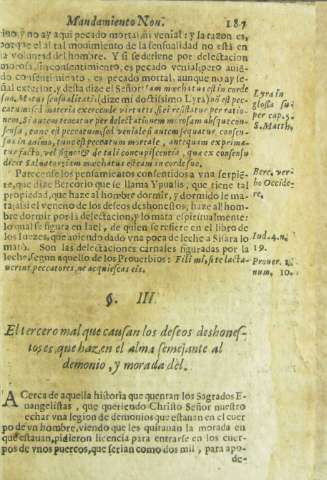 Mandamiento Non. 187
cino, y no ay aqui pecado mortal, ni venial: y la razon es,
porque el al tal modimiento de la sensualidad no està en
la voluntad del hombre. Y si se detiene por delectacion
morosa, sin consentimiento, es pecado venial: pero auiē-
do consentimiento, es pecado mortal, aunque no ay se-
ñal exterior, y desta dize el Señor: Iam mœchatus est in corde
suo. Motus sensualitatis (dize mi doctissimo Lyra) nō est pec-
catum: sed materia exercendæ virtutis, si ei resistatur per ratio-
nem. Si autem teneatur per delectationem morosam absque con-
sensu, tunc est peccatum: sed veniale: si autem sequatur consen-
sus in animo, tunc est peccatum mortale, antequam exprima-
tur facto, vel signo: & de tali concupiscentia, quæ ex consensu
dicit Saluator: iam mœchatus est eam in corde suo.
Lyra in
glossa su-
per cap. 5.
S. Matth.
Parecense los pensamientos consentidos a vna serpiē-
te, que dize Bercorio que se llama Ypualis, que tiene tal
propiedad, que haze al hombre dormir, y dormido le ma-
ta; assi el veneno de los deseos deshonestos, haze al hom-
bre dormir por la delectacion, y lo mata espiritualmente:
lo qual se figura en Iael, de quien se refiere en el libro de
los Iuezes, que auiendo dado vna poca de leche a Sisara lo
mató. Son las delectaciones carnales figuradas por la
leche, segun aquello de los Prouerbios: Fili mi, si te lacta-
uerint peccatores, ne acquiescas eis.
Berc. verbo
Occide-
re.
Iud. 4. n.
19.
Prouer. 1.
num. 10.
§. III.
El tercero mal que causan los deseos deshones-
tos es, que haz, en el alma semejante al
demonio, y morada del.
ACerca de aquella historia que quentan los Sagrados E-
uangelistas, que queriendo Christo Señor nuestro
echar vna legion de demonios que estauan en el cuer
po de vn hombre, viendo que les quitauan la morada en
que estauan, pidieron licencia para entrarse en los cuer-
pos de vnos puercos, que serian como dos mil, para apo-
de-